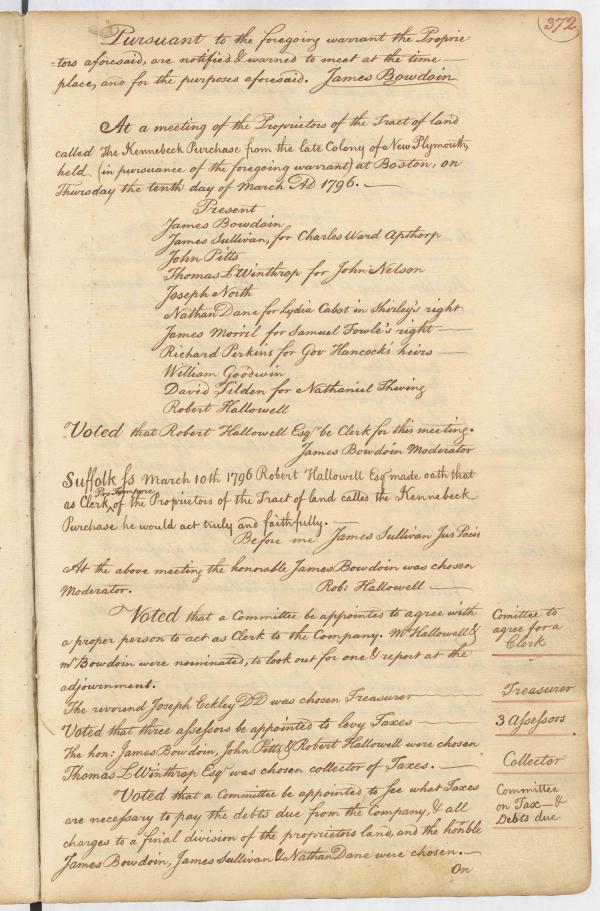 372
Pursuant to the foregoing warrant the Proprie-
-tors aforesaid, are notified & warned to meet at the time
place, and for the purposes aforesaid. James Bowdoin
At a meeting of the Proprietors of the Tract of land
called the Kennebeck Purchase from the late Colony of New Plymouth,
held (in pursuance of the foregoing warrant) at Boston, on
Thursday the tenth day of March AD 1796. —
Present
James Bowdoin
James Sullivan, for Charles Ward Apthorp
John Pitts
Thomas L Winthrop for John Nelson
Joseph North
Nathan Dane for Lydia Cabot in Shirley's right
James Morril for Samuel Fowle's right —
Richard Perkins for Gov Hancock's heirs —
William Goodwin
David Tilden for Nathaniel Thwing
Robert Hallowell
Voted that Robert Hallowell Esqr be Clerk for this meeting.
James Bowdoin Moderator
Suffolk ſs March 10th 1796 Robert Hallowell Esqr made oath that
Pro Tempore
as Clerk ‸ of the Proprietors of the Tract of land called the Kennebeck
Purchase he would act truly and faithfully. —
Before me James Sullivan Jus Pacis
At the above meeting the honorable James Bowdoin was chosen
Moderator. Rob: Hallowell —
Voted that a Committee be appointed to agree with
a proper person to act as Clerk to the Company. Mr Hallowell &
mr Bowdoin were nominated, to look out for one & report at the
adjournment.
Comittee to
agree for a
Clerk
The reverend Joseph Eckley DD was chosen Treasurer —
Treasurer
Voted that three aſseſsors be appointed to levy Taxes —
3 Aſseſsors
The hon: James Bowdoin, John Pitts & Robert Hallowell were chosen
Thomas L Winthrop Esqr was chosen collector of Taxes. —
Collector
Voted that a Committee be appointed to see what Taxes
are necessary to pay the debts due from the Company, & all
charges to a final division of the proprietors land, and the honble
James Bowdoin, James Sullivan & Nathan Dane were chosen. —
Committee
on Tax — &
Debts due
On